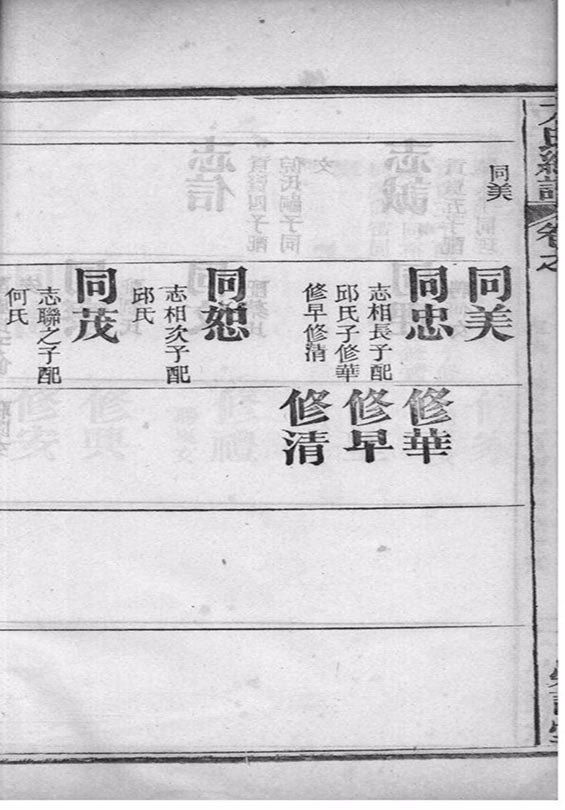 同美
同美
同忠
志相長子配
邱氏子修華
修早修清
同恕
志相次子配
邱氏
同茂
志聯之子配
何氏
修華
修早
修清